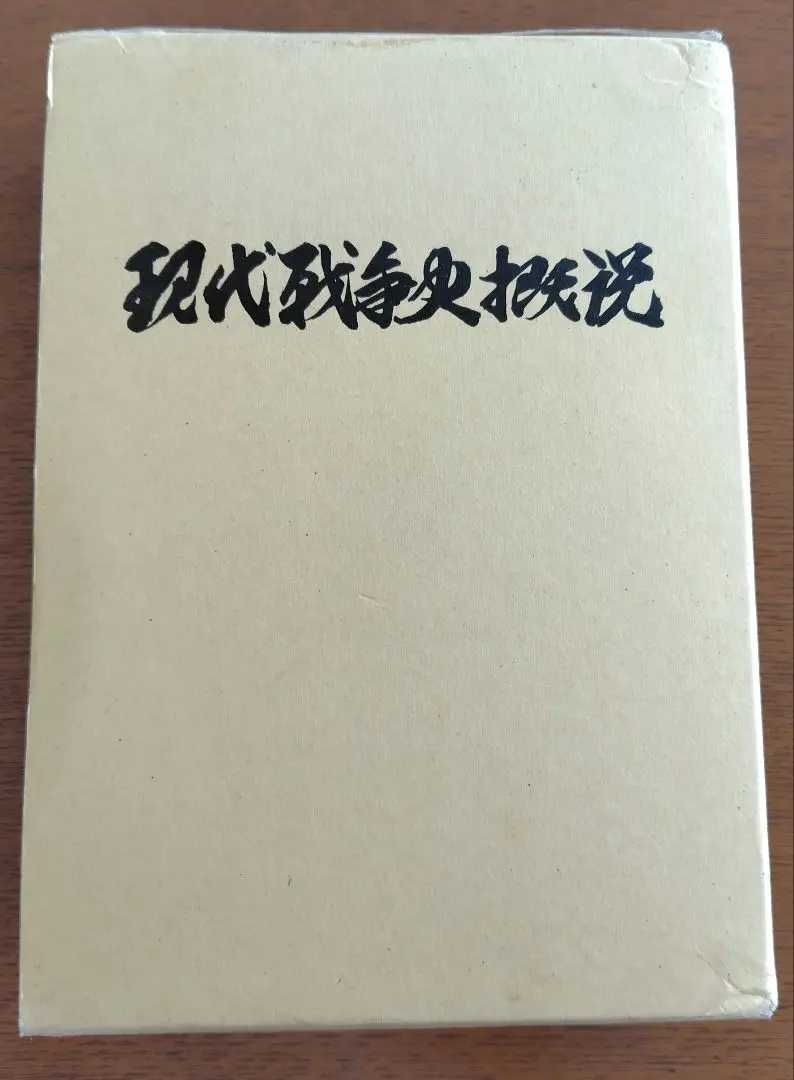 現代戦争史概説